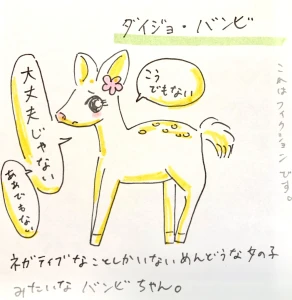 ダイジョ・バンビ
こうでもない
大丈夫じゃない
ああでもない
これはフィクションです。
ネガティブなことしかいないめんどうな女の子
みたいな バンビちゃん。